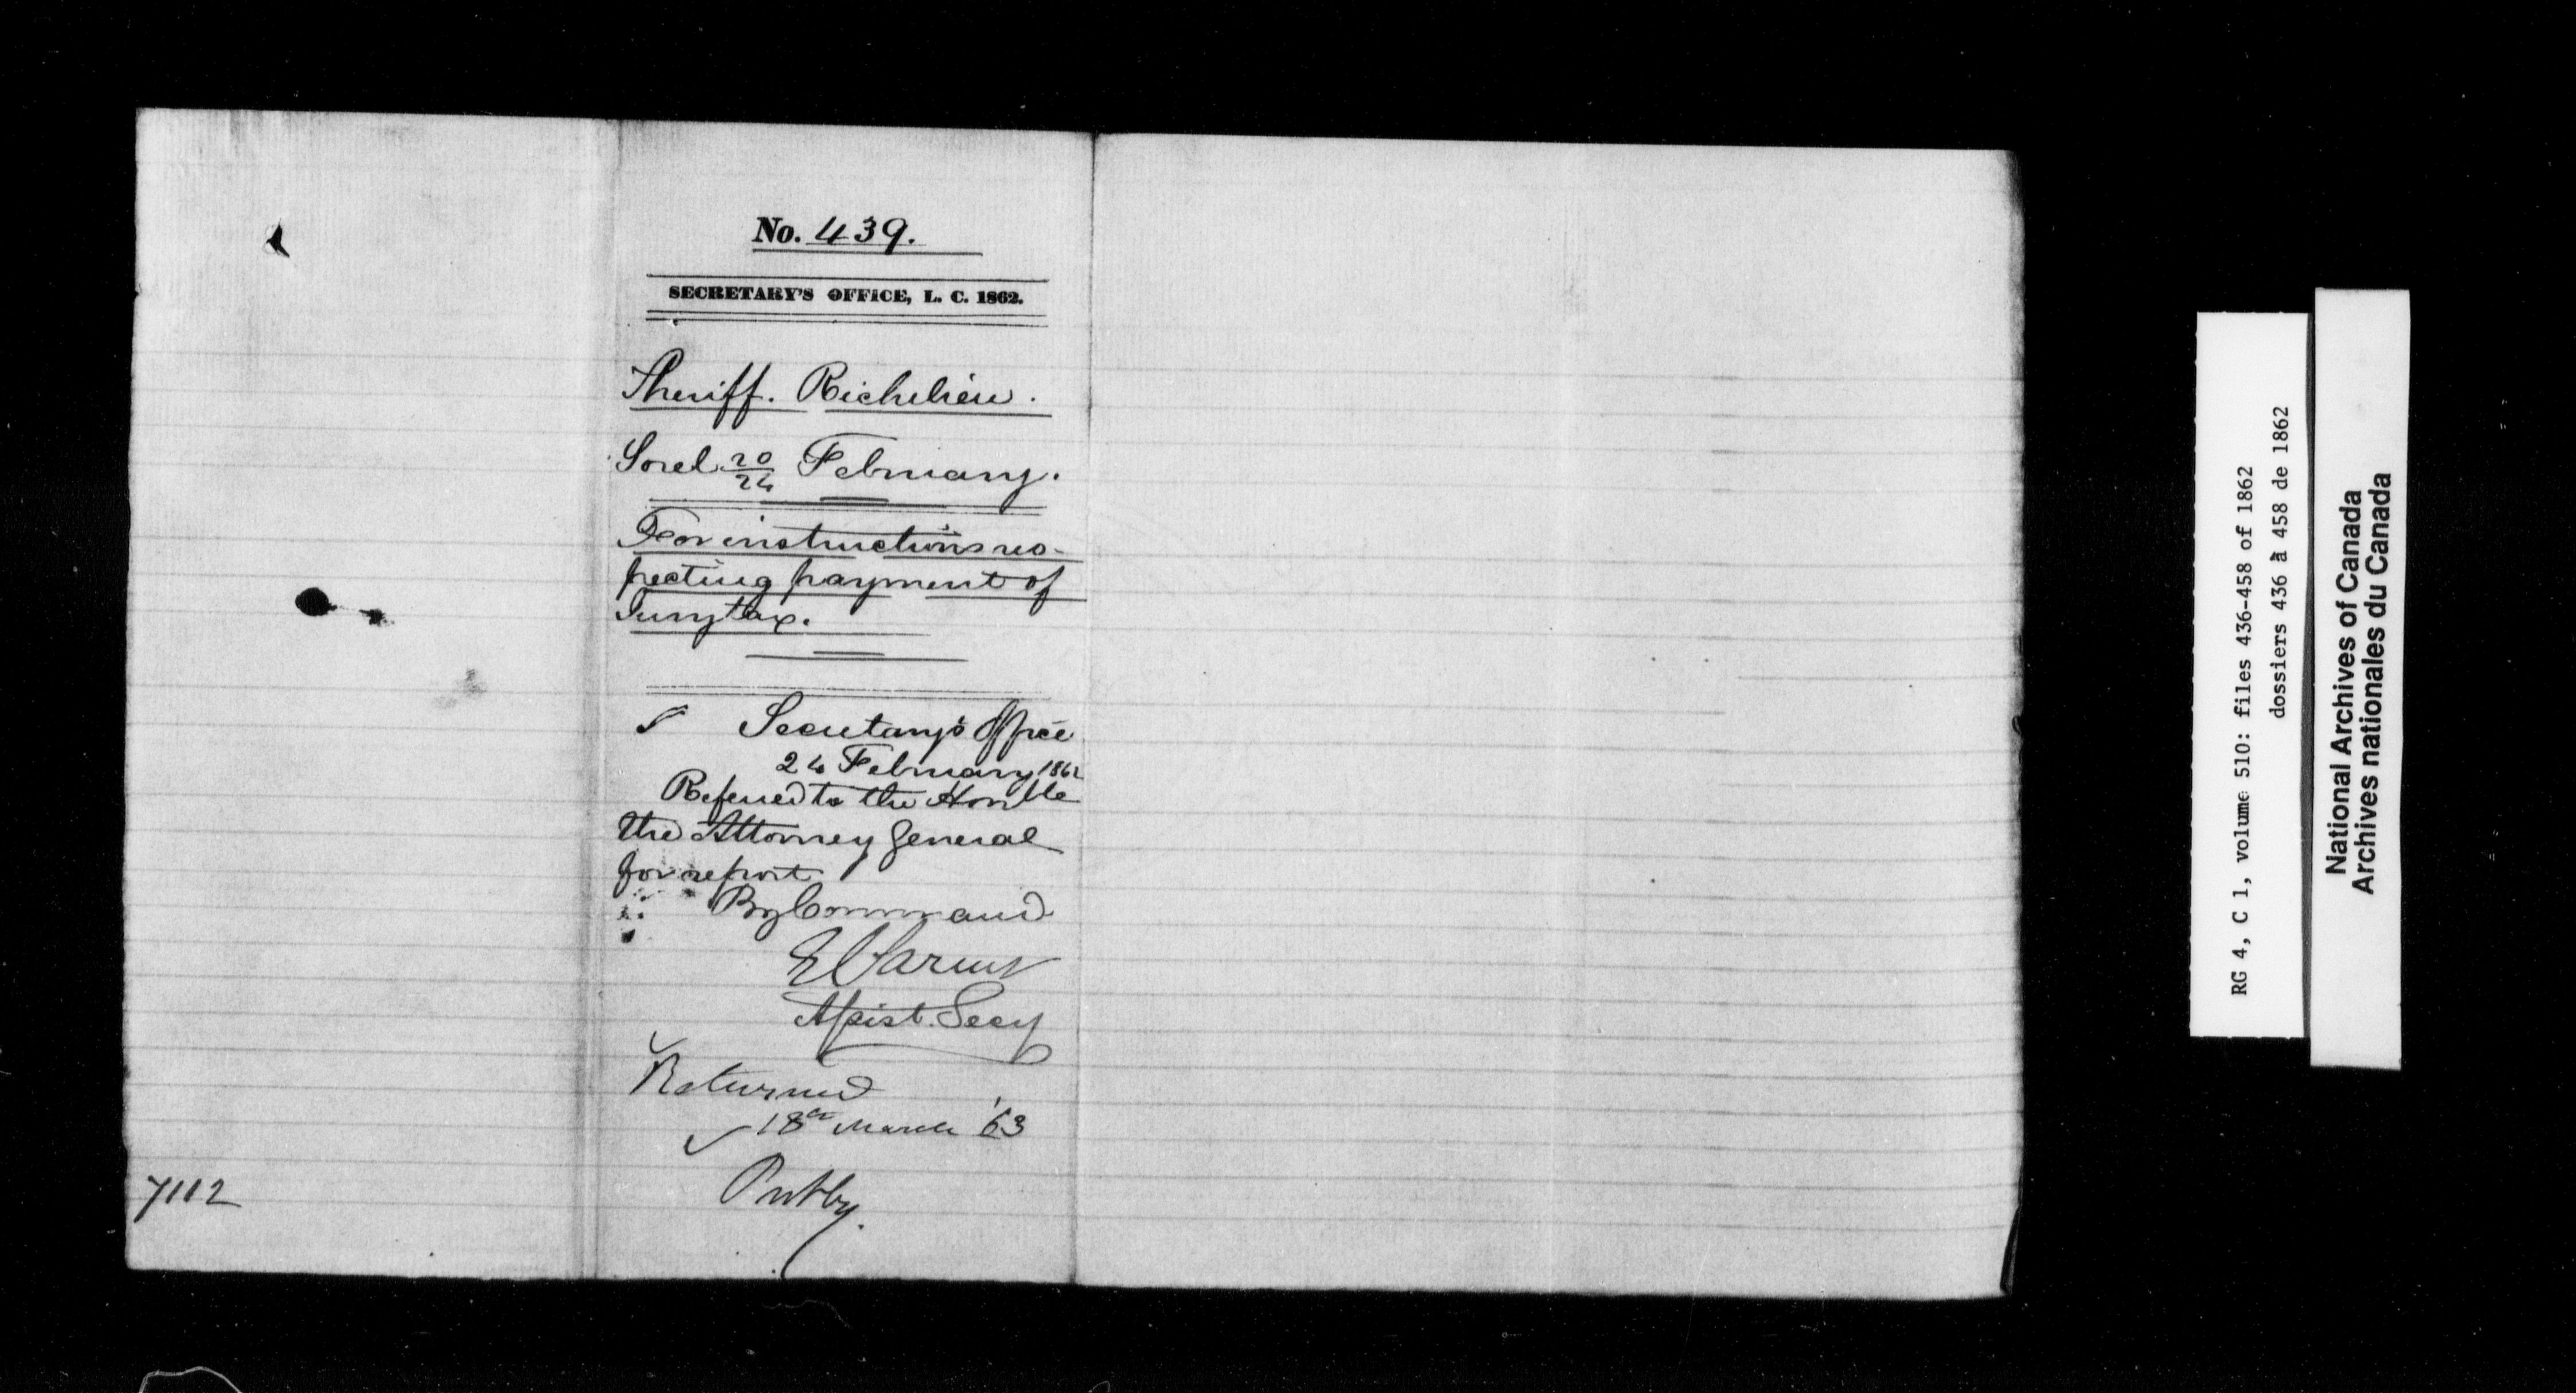 No. 439.
SECRETARY'S OFFICE, L. C. 1862.
Sheriff. Richelieu.
Sorel 20/24 February.
For instructions res-
pecting payment of
Jury tax.
Secretary's Office
24 February 1862
Referred to the Honble
the Attorney General
for report
By Command
Assist. Secy
Returned
18th March '63
7112
RG 4, C 1, volume 510: files 436-458 of 1862
dossiers 436 à 458 de 1862
National Archives of Canada
Archives nationales du Canada